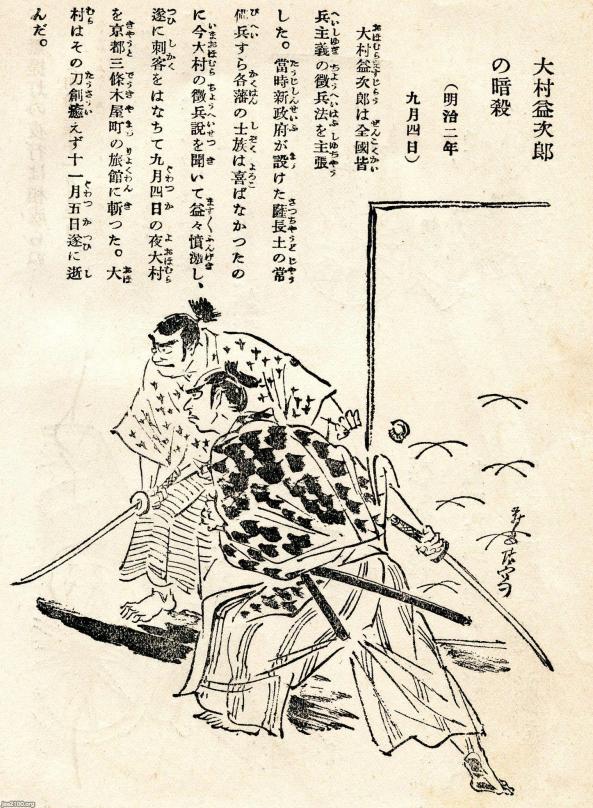 大村益次郎
の暗殺
（明治二年
九月四日）
大村益次郎は全國皆
兵主義の徴兵法を主張
した。當時新政府が設けた薩長土の常
備兵すら各藩の士族は喜ばなかつたの
に今大村の徴兵説を聞いて益々憤激し、
遂に刺客をはなちて九月四日の夜大村
を京都三條木屋町の旅館に斬つた。大
村はその刀創癒えず十一月五日遂に逝
んだ。
jaa2100.org